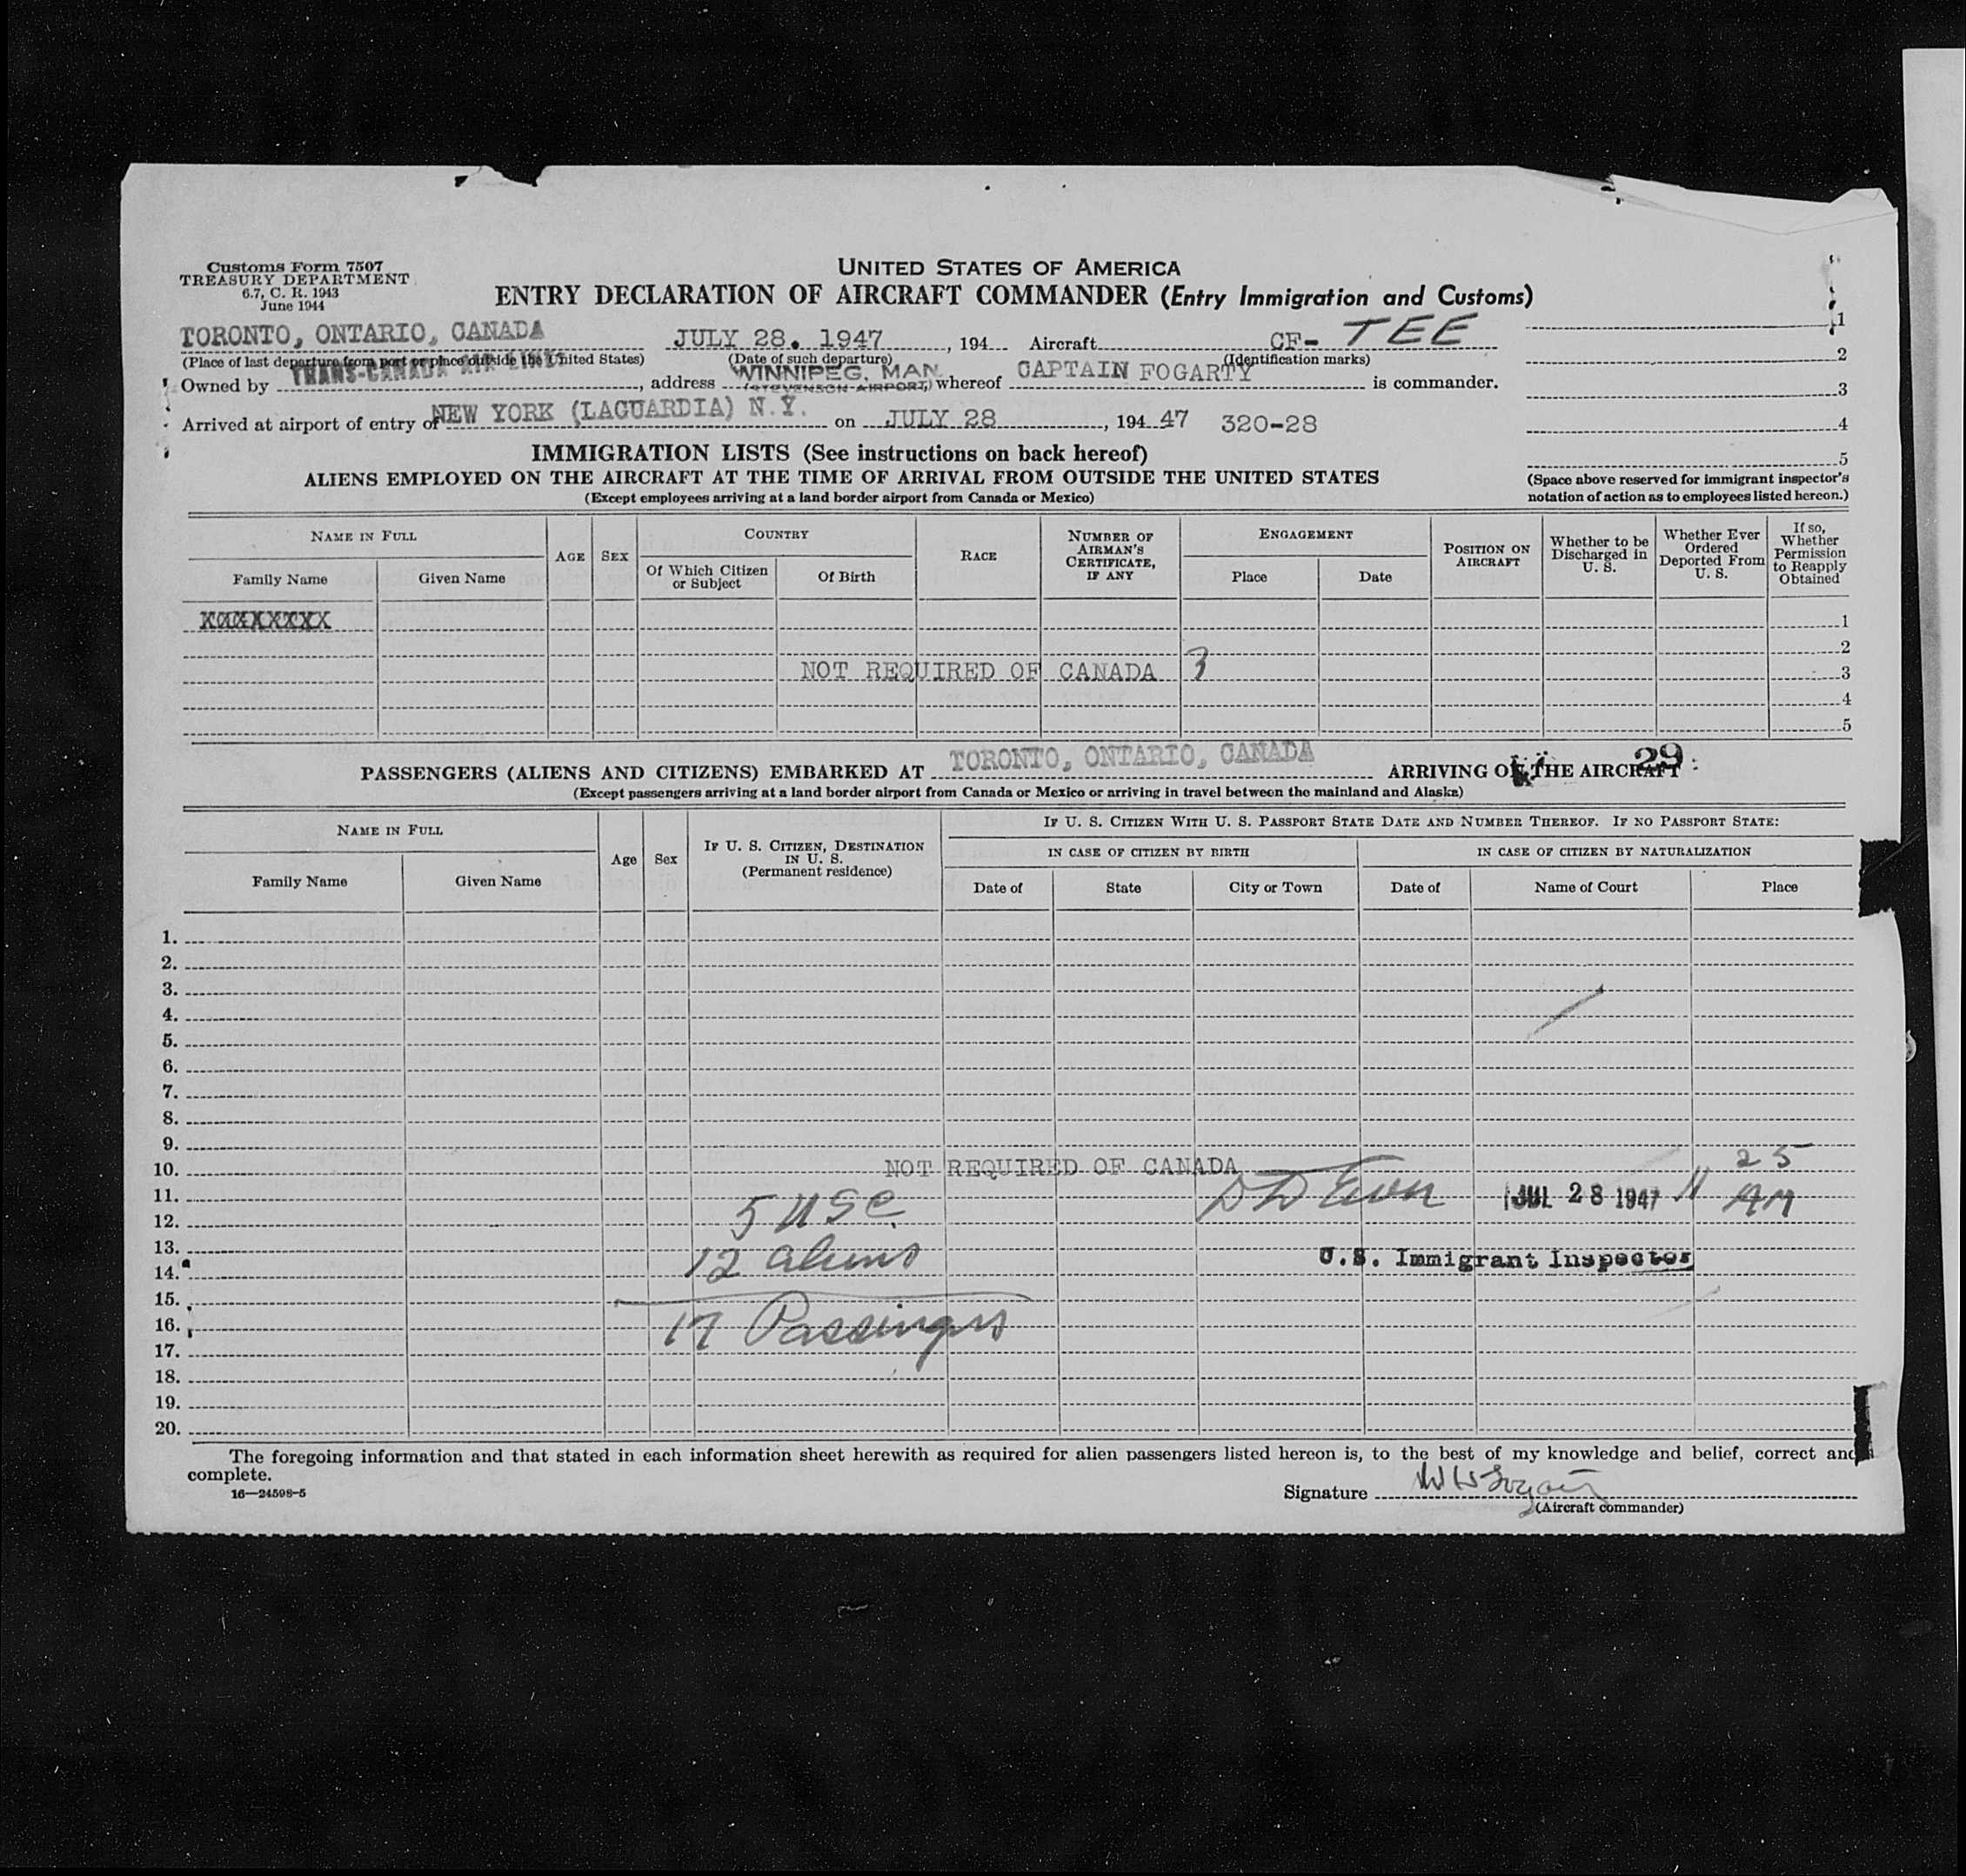 Customs Form 7507
TREASURY DEPARTMENT
6.7, C. R. 1943
June 1944
UNITED STATES OF AMERICA
ENTRY DECLARATION OF AIRCRAFT COMMANDER (Entry Immigration and Customs)
TORONTO, ONTARIO, CANADA JULY 28. 1947, 194 Aircraft CF- TEE
(Place of last departure from port or place outside the United States) (Date of such departure) (Identification marks)
Owned by TRANS-CANADA AIR LINES, address WINNIPEG, MAN. (STEVENSON AIRPORT,) whereof CAPTAIN FOGARTY is commander.
Arrived at airport of entry of NEW YORK (LAGUARDIA) N.Y. on JULY 28, 194 47 320-28
1
2
3
4
5
(Space above reserved for immigrant inspector's notation of action as to employees listed hereon.)
IMMIGRATION LISTS (See instructions on back hereof)
ALIENS EMPLOYED ON THE AIRCRAFT AT THE TIME OF ARRIVAL FROM OUTSIDE THE UNITED STATES
(Except employees arriving at a land border airport from Canada or Mexico)
NAME IN FULL
Family Name Given Name
AGE SEX
COUNTRY
Of Which Citizen or Subject Of Birth
RACE
NUMBER OF AIRMAN'S CERTIFICATE, IF ANY
ENGAGEMENT
Place Date
POSITION ON AIRCRAFT
Whether to be Discharged in U. S.
Whether Ever Ordered Deported From U. S.
If so, Whether Permission to Reapply Obtained
XXXXXXXX 1
2
NOT REQUIRED OF CANADA 3 3
4
5
PASSENGERS (ALIENS AND CITIZENS) EMBARKED AT TORONTO, ONTARIO, CANADA ARRIVING ON THE AIRCRAFT 29
(Except passengers arriving at a land border airport from Canada or Mexico or arriving in travel between the mainland and Alaska)
NAME IN FULL
Family Name Given Name
Age Sex
IF U. S. CITIZEN, DESTINATION IN U. S. (Permanent residence)
IF U. S. CITIZEN WITH U. S. PASSPORT STATE DATE AND NUMBER THEREOF. IF NO PASSPORT STATE:
IN CASE OF CITIZEN BY BIRTH IN CASE OF CITIZEN BY NATURALIZATION
Date of State City or Town Date of Name of Court Place
1.
2.
3.
4.
5.
6.
7.
8.
9.
10. NOT REQUIRED OF CANADA 25
11. 5 USC JUL 28 1947 11 AM
12.
13. 12 aliens U.S. Immigrant Inspector
14.
15.
16. 17 Passengers
17.
18.
19.
20.
The foregoing information and that stated in each information sheet herewith as required for alien passengers listed hereon is, to the best of my knowledge and belief, correct and
complete.
16—24598-5
Signature W W Fogarty
(Aircraft commander)